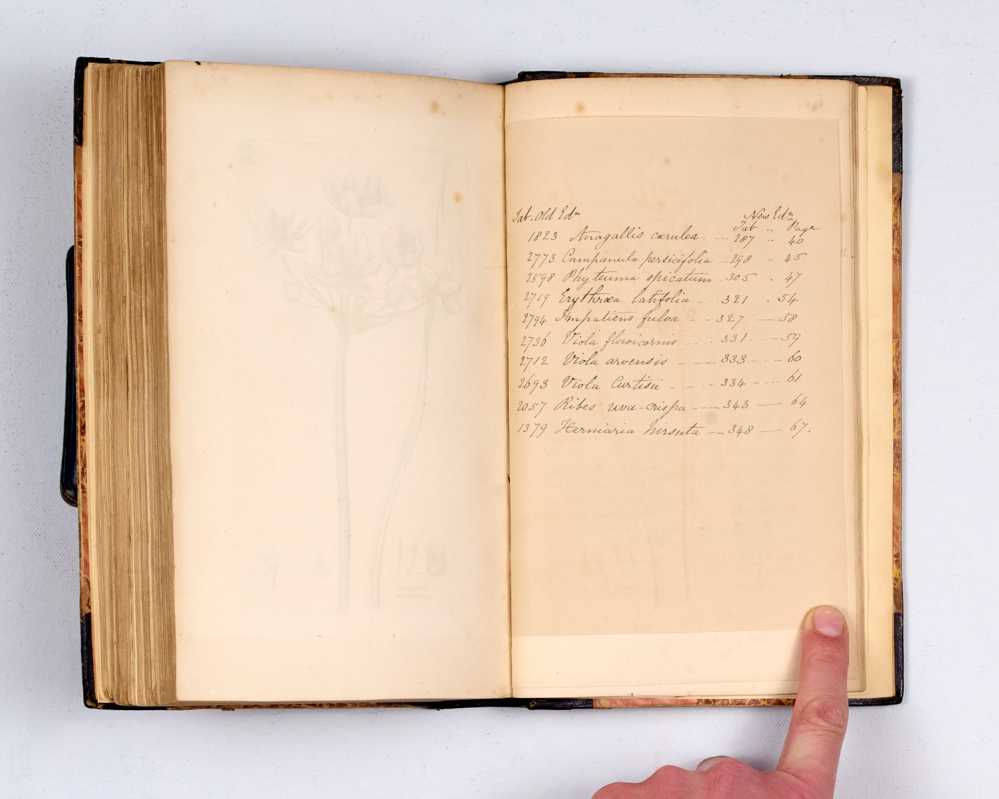 Tab. Old Edn New Edn
Tab " Page
1823 Anagallis cœrulea - --- 287 " 40
2773 Campanula persicifolia -- 298 " 45
2598 Phyteuma spicatum --- 305 " 47
2719 Erythræa latifolia - . 321 " 54
2794 Impatiens fulva - - 327 --- 58
2736 Viola flavicornis - - - - 331 - - - 59
2712 Viola arvensis --- --- 333 - - - 60
2693 Viola Curtisii - - - --- 334 - - - - 61
2057 Ribes uva-crispa - --- 343 --- 64
1379 Herniaria hirsuta --- 348 --- 67.